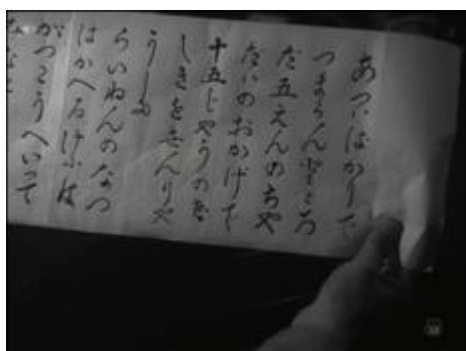 あついばかりで
つまらんところ
だ五えんのちや
だいのおかげで
十五じやうのざ
しきをせんりや
うした
らいねんのなつ
はかへるけふは
がつこうへいつて